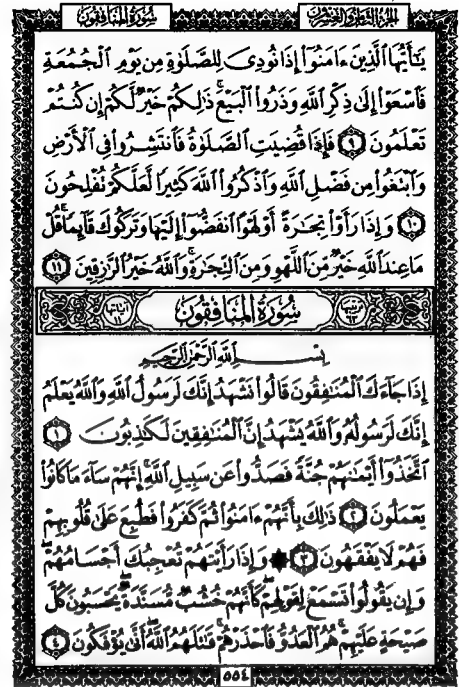 سُورَةُ المُنَافِقُونَ الجزء الثامن والعشرون
يَٰٓأَيُّهَا ٱلَّذِينَ ءَامَنُوٓا۟ إِذَا نُودِىَ لِلصَّلَوٰةِ مِن يَوْمِ ٱلْجُمُعَةِ
فَٱسْعَوْا۟ إِلَىٰ ذِكْرِ ٱللَّهِ وَذَرُوا۟ ٱلْبَيْعَ ۚ ذَٰلِكُمْ خَيْرٌ لَّكُمْ إِن كُنتُمْ
تَعْلَمُونَ ٩ فَإِذَا قُضِيَتِ ٱلصَّلَوٰةُ فَٱنتَشِرُوا۟ فِى ٱلْأَرْضِ
وَٱبْتَغُوا۟ مِن فَضْلِ ٱللَّهِ وَٱذْكُرُوا۟ ٱللَّهَ كَثِيرًا لَّعَلَّكُمْ تُفْلِحُونَ
١٠ وَإِذَا رَأَوْا۟ تِجَٰرَةً أَوْ لَهْوًا ٱنفَضُّوٓا۟ إِلَيْهَا وَتَرَكُوكَ قَآئِمًا ۚ قُلْ
مَا عِندَ ٱللَّهِ خَيْرٌ مِّنَ ٱللَّهْوِ وَمِنَ ٱلتِّجَٰرَةِ ۚ وَٱللَّهُ خَيْرُ ٱلرَّٰزِقِينَ ١١
ترتيبها ٦٣ سُورَةُ المُنَافِقُونَ آياتها ١١
بِسْمِ ٱللَّهِ ٱلرَّحْمَٰنِ ٱلرَّحِيمِ
إِذَا جَآءَكَ ٱلْمُنَٰفِقُونَ قَالُوا۟ نَشْهَدُ إِنَّكَ لَرَسُولُ ٱللَّهِ وَٱللَّهُ يَعْلَمُ
إِنَّكَ لَرَسُولُهُۥ وَٱللَّهُ يَشْهَدُ إِنَّ ٱلْمُنَٰفِقِينَ لَكَٰذِبُونَ ١
ٱتَّخَذُوٓا۟ أَيْمَٰنَهُمْ جُنَّةً فَصَدُّوا۟ عَن سَبِيلِ ٱللَّهِ ۚ إِنَّهُمْ سَآءَ مَا كَانُوا۟
يَعْمَلُونَ ٢ ذَٰلِكَ بِأَنَّهُمْ ءَامَنُوا۟ ثُمَّ كَفَرُوا۟ فَطُبِعَ عَلَىٰ قُلُوبِهِمْ
فَهُمْ لَا يَفْقَهُونَ ٣ ۞ وَإِذَا رَأَيْتَهُمْ تُعْجِبُكَ أَجْسَامُهُمْ ۖ
وَإِن يَقُولُوا۟ تَسْمَعْ لِقَوْلِهِمْ ۖ كَأَنَّهُمْ خُشُبٌ مُّسَنَّدَةٌ ۖ يَحْسَبُونَ كُلَّ
صَيْحَةٍ عَلَيْهِمْ ۚ هُمُ ٱلْعَدُوُّ فَٱحْذَرْهُمْ ۚ قَٰتَلَهُمُ ٱللَّهُ ۖ أَنَّىٰ يُؤْفَكُونَ ٤
٥٥٤